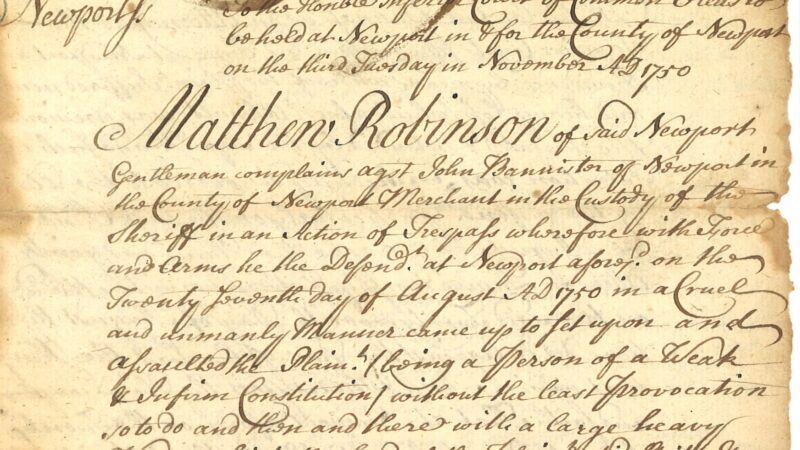 Newport Js
To the Honble Inferir Court of Common Pleas to
be held at Newport in & for the County of Newport
on the third Tuesday in November AD 1750
Matthew Robinson of said Newport
Gentleman complains agst John Bannister of Newport in
the County of Newport Merchant in the Custody of the
Sheriff in an Action of Trespass wherefore with Force
and Arms he the Defendt. at Newport aforesd. on the
Twenty Seventh day of August AD 1750 in a Cruel
and unmanly Manner came up to set upon and
assaulted the Plaint. (being a Person of a Weak
& Infirm Constitution) without the least Provocation
so to do and then and there with a large heavy